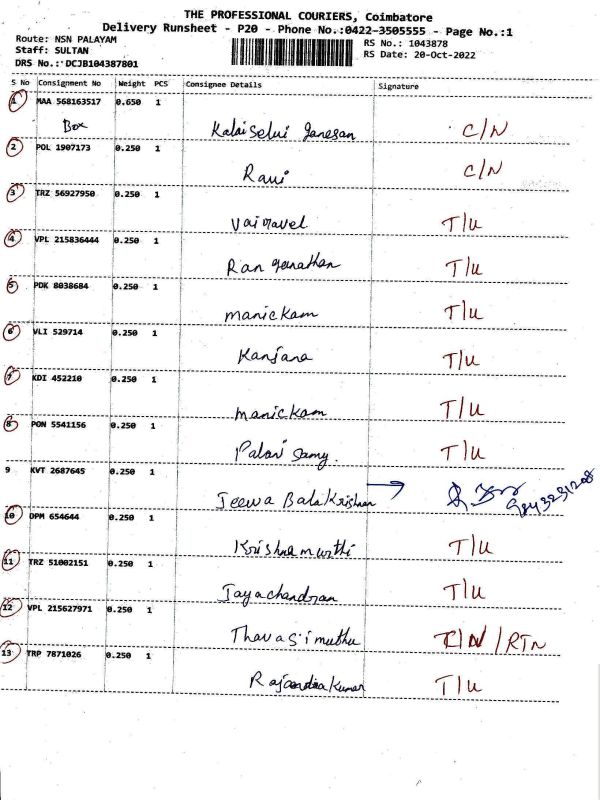 THE PROFESSIONAL COURIERS, Coimbatore
Delivery Runsheet - P20 - Phone No.:0422-3505555 - Page No.:1
Route: NSN PALAYAM
Staff: SULTAN
DRS No.: DCJB104387801
RS No.: 1043878
RS Date: 20-Oct-2022
S No Consignment No Weight PCS Consignee Details Signature
1 MAA 568163517 0.650 1
Box Kalaiselvi Ganesan C/N
2 POL 1907173 0.250 1
Ravi C/N
3 TRZ 56927950 0.250 1
Vairavel T/U
4 VPL 215836444 0.250 1
Ranganathan T/U
5 PDK 8038684 0.250 1
manickam T/U
6 VLI 529714 0.250 1
Kanjana T/U
7 KDI 452210 0.250 1
manickam T/U
8 PON 5541156 0.250 1
Palani Samy. T/U
9 KVT 2687645 0.250 1
Jeewa BalaKrishnan → 9843231208
10 DPM 654644 0.250 1
Krishnamurthi T/U
11 TRZ 51002151 0.250 1
Jayachandran T/U
12 VPL 215627971 0.250 1
Thavasimuthu C/N / RTN
13 TRP 7871026 0.250 1
Rajendra Kumar T/U